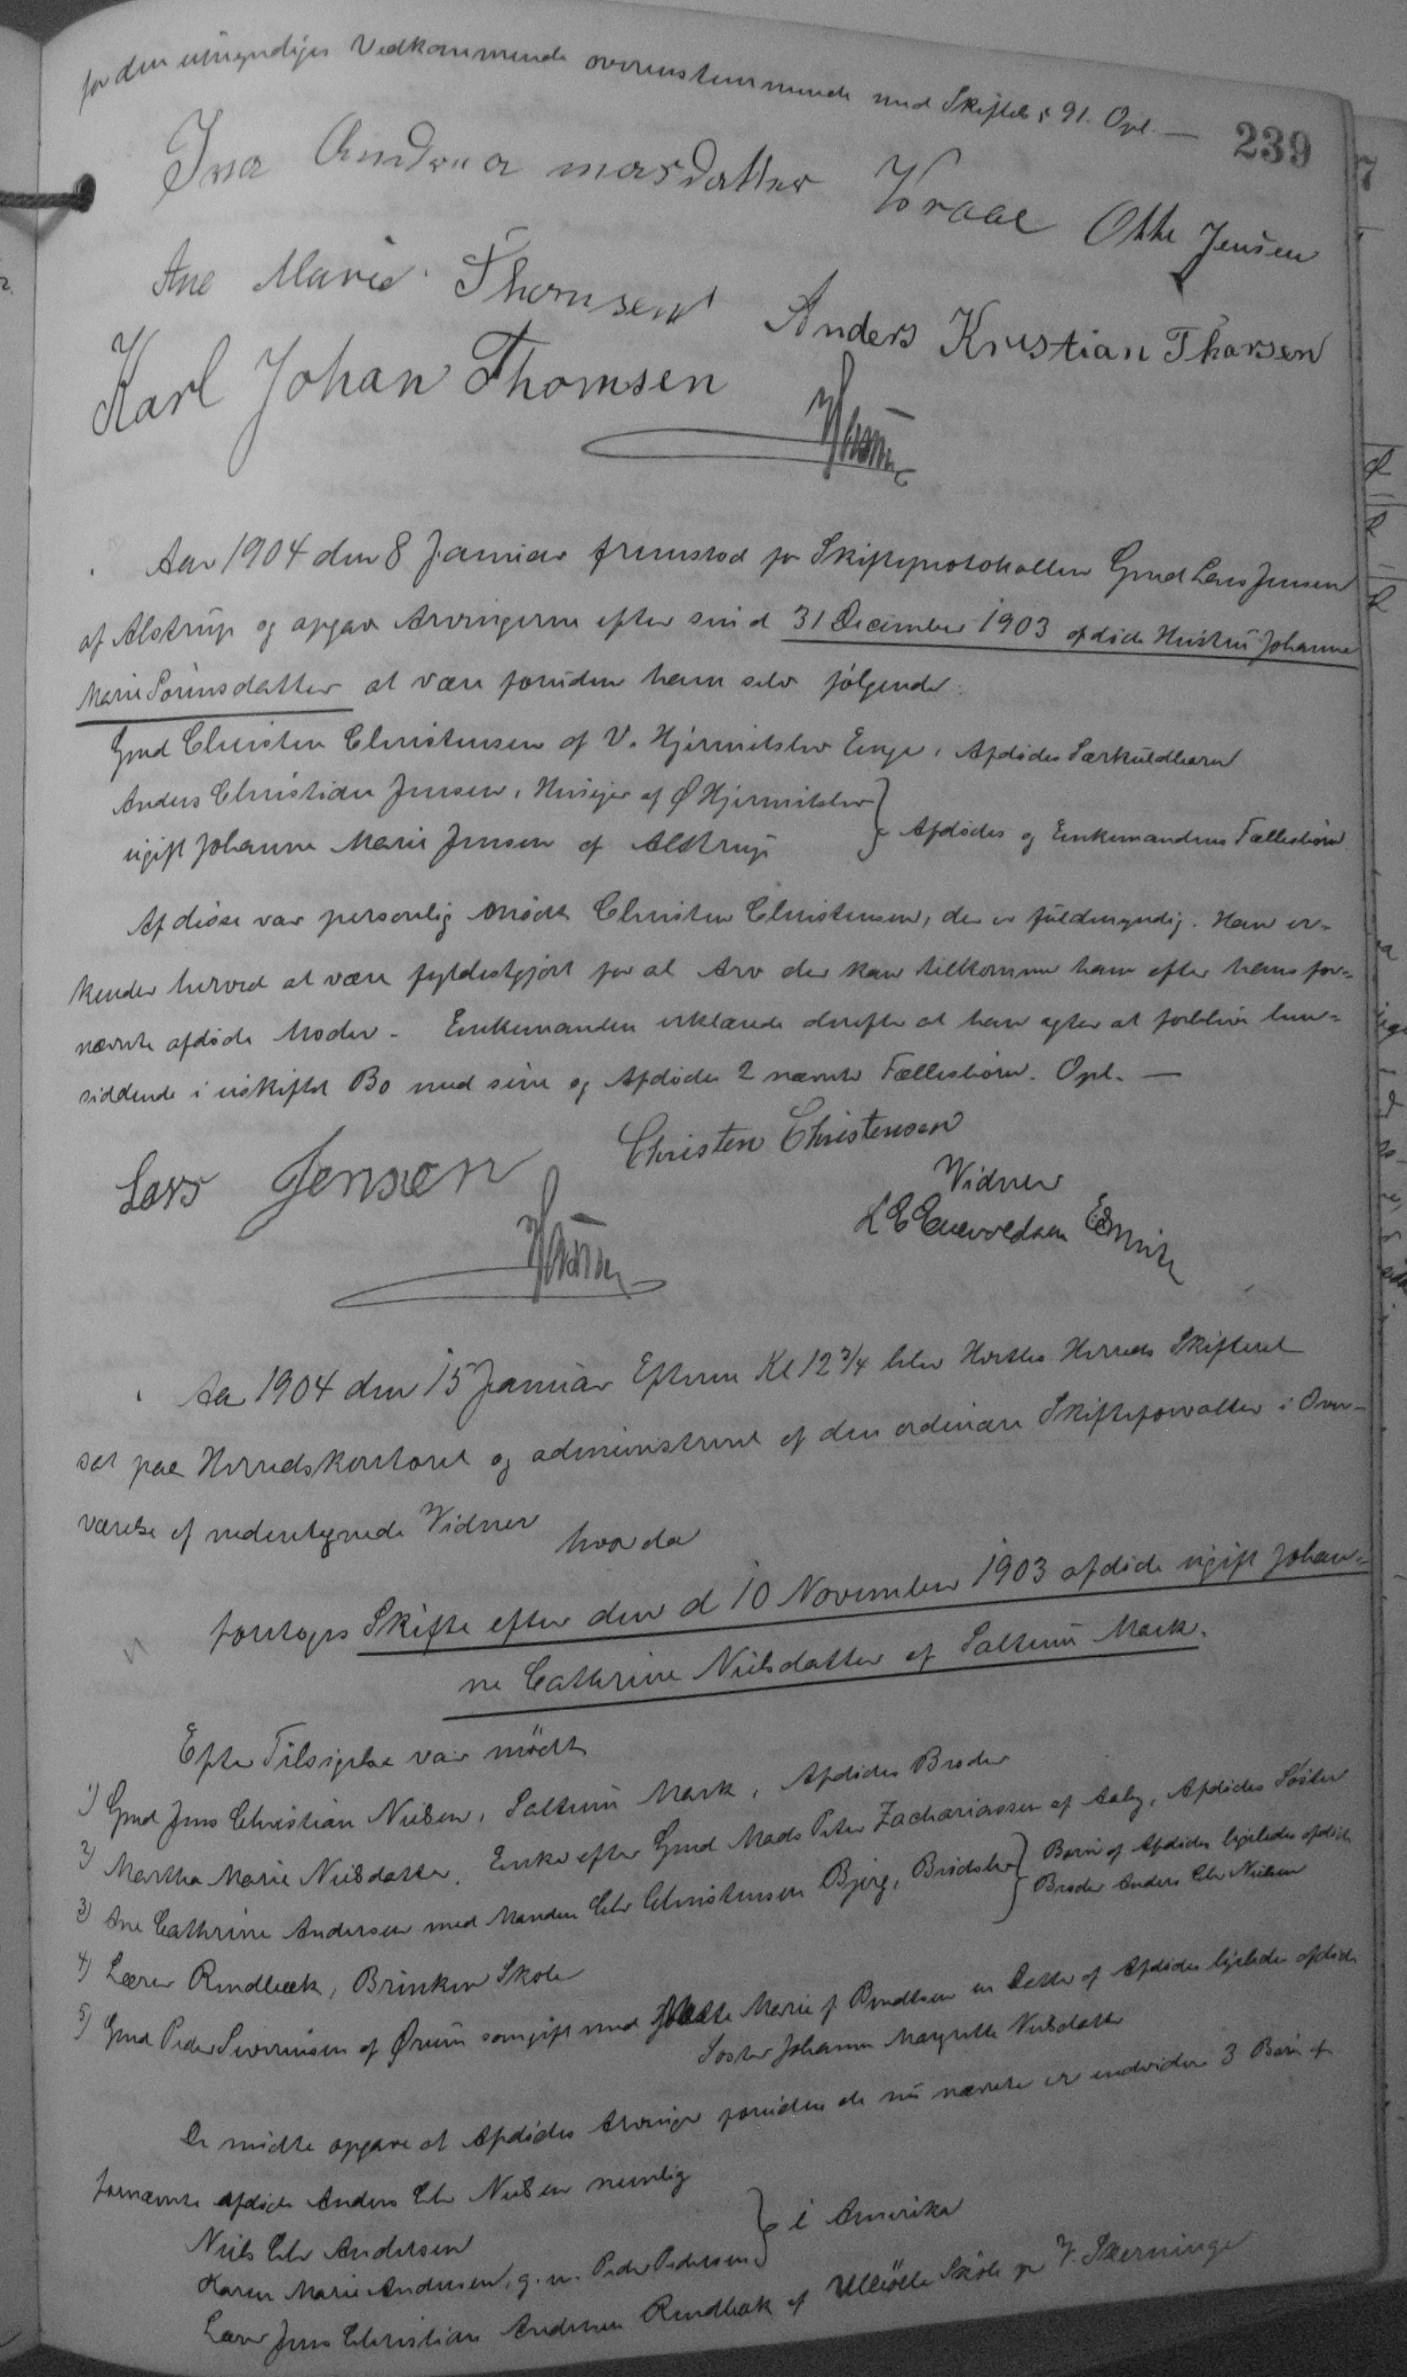 for den umyndiges Vedkommende overensstemmende med Skiftel § 91. Opl. —
239
Ina Andrea Mårsdatter Kraal Otto Jensen
Ane Marie Thomsen Anders Kristian Thorsen
Karl Johan Thomsen
Aar 1904 den 8 Januar fremstod for Skifteprotokollen Gmd Lars Jensen
af Alstrup og opgav Arvingerne efter sin d 31 December 1903 afdøde Hustru Johanne
Marie Sørensdatter at være foruden ham selv følgende:
Gmd Christen Christensen af V. Hjermitslev Enge, Afdødes Særkuldbarn
Anders Christian Jensen, Husejer af Ø Hjermitslev
ugift Johanne Marie Jensen af Alstrup } Afdødes og Enkemandens Fællesbørn
Af disse var personlig mødt Christen Christensen, der er fuldmyndig. Han er-
kender herved at være fyldestgjort for al Arv der kan tilkomme ham efter hans for-
nævnte afdøde Moder. Enkemanden erklærede derefter at han agter at forblive hen-
siddende i uskiftet Bo med sine og Afdødes 2 nævnte Fællesbørn. Opl. —
Lars Jensen Christen Christensen
Vidner
L E Enevoldsen
Aar 1904 den 15 Januar Efterm Kl 12 3/4 blev Hvetbo Herreds Skifteret
sat paa Herredskontoret og administreret af den ordinære Skifteforvalter i Over-
værelse af nedentegnede Vidner
hvor da
foretoges Skifte efter den d 10 November 1903 afdøde ugift Johan-
ne Cathrine Nielsdatter af Saltum Mark.
Efter Tilsigelse var mødt
1) Gmd Jens Christian Nielsen, Saltum Mark, Afdødes Broder
2) Martha Marie Nielsdatter, Enke efter Gmd Mads Peter Zachariassen af Aaby, Afdødes Søster
3) Ane Cathrine Andersen med Manden Chr Christensen Bjerg, Brødslev } Børn af Afdødes ligeledes afdøde
Broder Anders Chr Nielsen
4) Lærer Rendbæk, Brinken Skole
5) Gmd Peder Severinsen af Ørum som gift med Mette Marie f Bendtsen en Datter af Afdødes ligeledes afdøde
Søster Johanne Margrethe Nielsdatter
De mødte opgave at Afdødes Arvinger foruden de nu nævnte er endvidere 3 Børn af
fornævnte afdøde Anders Chr Nielsen nemlig
Niels Chr Andersen
Karen Marie Andersen, g. m. Peder Pedersen } i Amerika
Lærer Jens Christian Andersen Rendbæk af Ulbølle Skole pr V. Skerninge